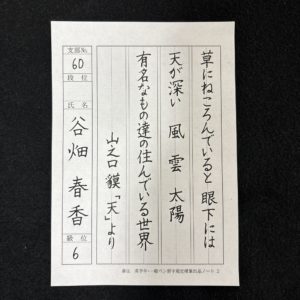 草にねころんでいると 眼下には
天が深い 風 雲 太陽
有名なもの達の住んでいる世界
山之口貘「天」より
支部№
60
段位
氏名
谷畑春香
級位
6